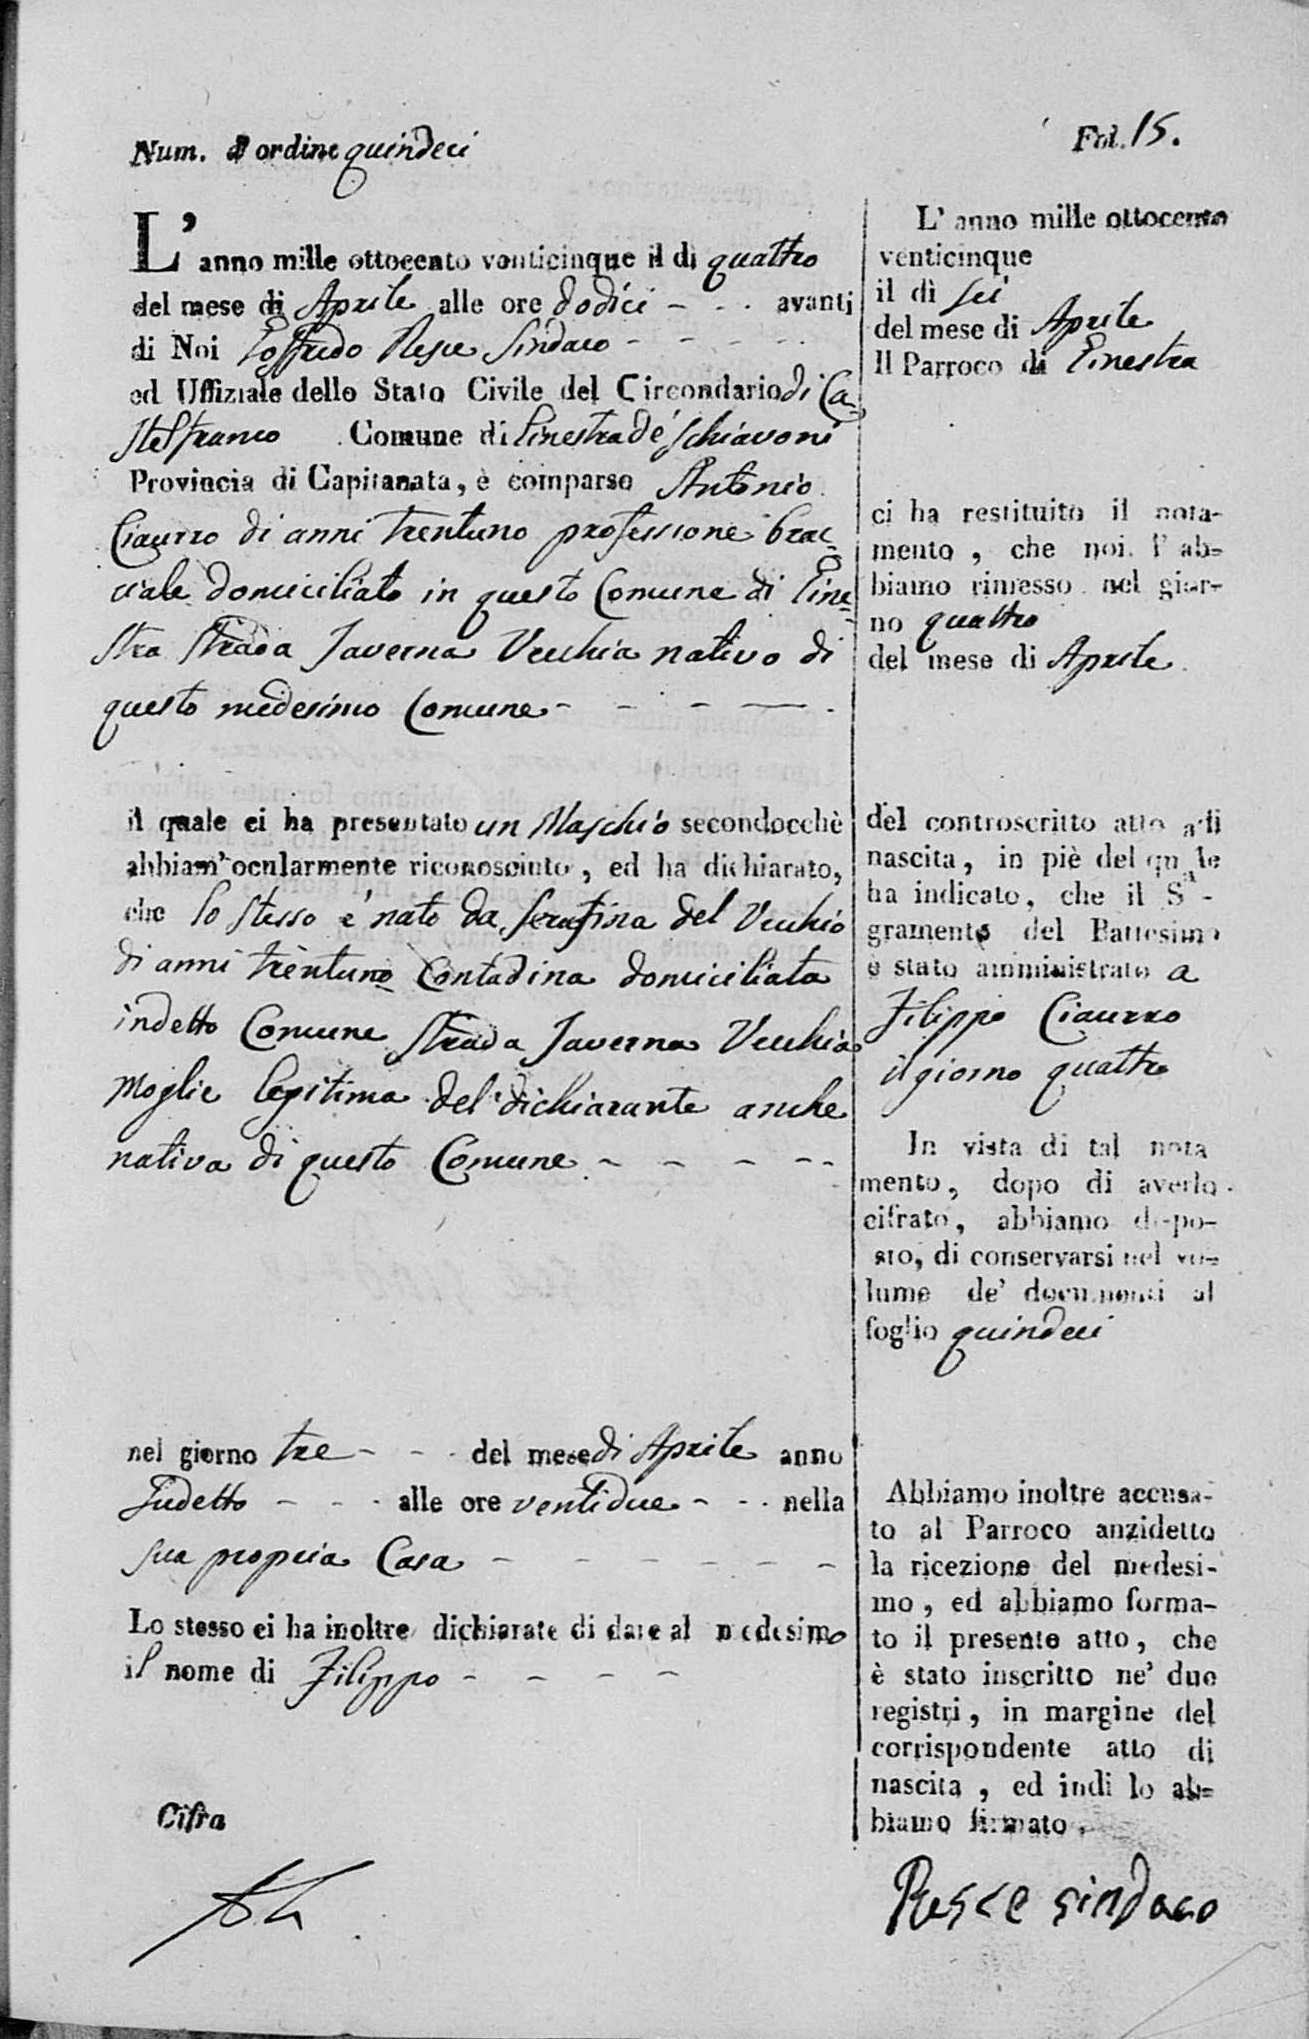 Num. d'ordine quindeci
Fol. 15.
L'anno mille ottocento venticinque il dì quattro
del mese di Aprile alle ore dodici - - - avanti
di Noi Loffredo Resce Sindaco - - - - -
ed Uffiziale dello Stato Civile del Circondario di Ca-
stelfranco Comune di Ginestra de' Schiavoni
Provincia di Capitanata, è comparso Antonio
Ciaurro di anni trentuno professione brac-
ciale domiciliato in questo Comune di Gine-
stra Strada Taverna Vecchia nativo di
questo medesimo Comune - - - - -
il quale ci ha presentato un Maschio secondocchè
abbiam' ocularmente riconosciuto, ed ha dichiarato,
che lo stesso è nato da Serafina del Vecchio
di anni trentuno Contadina domiciliata
indetto Comune Strada Taverna Vecchia
Moglie legitima del dichiarante anche
nativa di questo Comune - - - - -
nel giorno tre - - - del mese di Aprile anno
sudetto - - - alle ore ventidue - - - nella
sua propria Casa - - - - - - -
Lo stesso ci ha inoltre dichiarate di dare al medesimo
il nome di Filippo - - - -
Cifra
L'anno mille ottocento
venticinque
il dì sei
del mese di Aprile
Il Parroco di Ginestra
ci ha restituito il nota-
mento, che noi l'ab-
biamo rimesso nel gior-
no quattro
del mese di Aprile
del controscritto atto di
nascita, in piè del quale
ha indicato, che il Sa-
gramento del Battesimo
è stato amministrato a
Filippo Ciaurro
il giorno quattro
In vista di tal nota
mento, dopo di averlo
cifrato, abbiamo dispo-
sto, di conservarsi nel vo-
lume de' documenti al
foglio quindeci
Abbiamo inoltre accusa-
to al Parroco anzidetto
la ricezione del medesi-
mo, ed abbiamo forma-
to il presente atto, che
è stato inscritto ne' due
registri, in margine del
corrispondente atto di
nascita, ed indi lo ab-
biamo firmato.
Resce sindaco